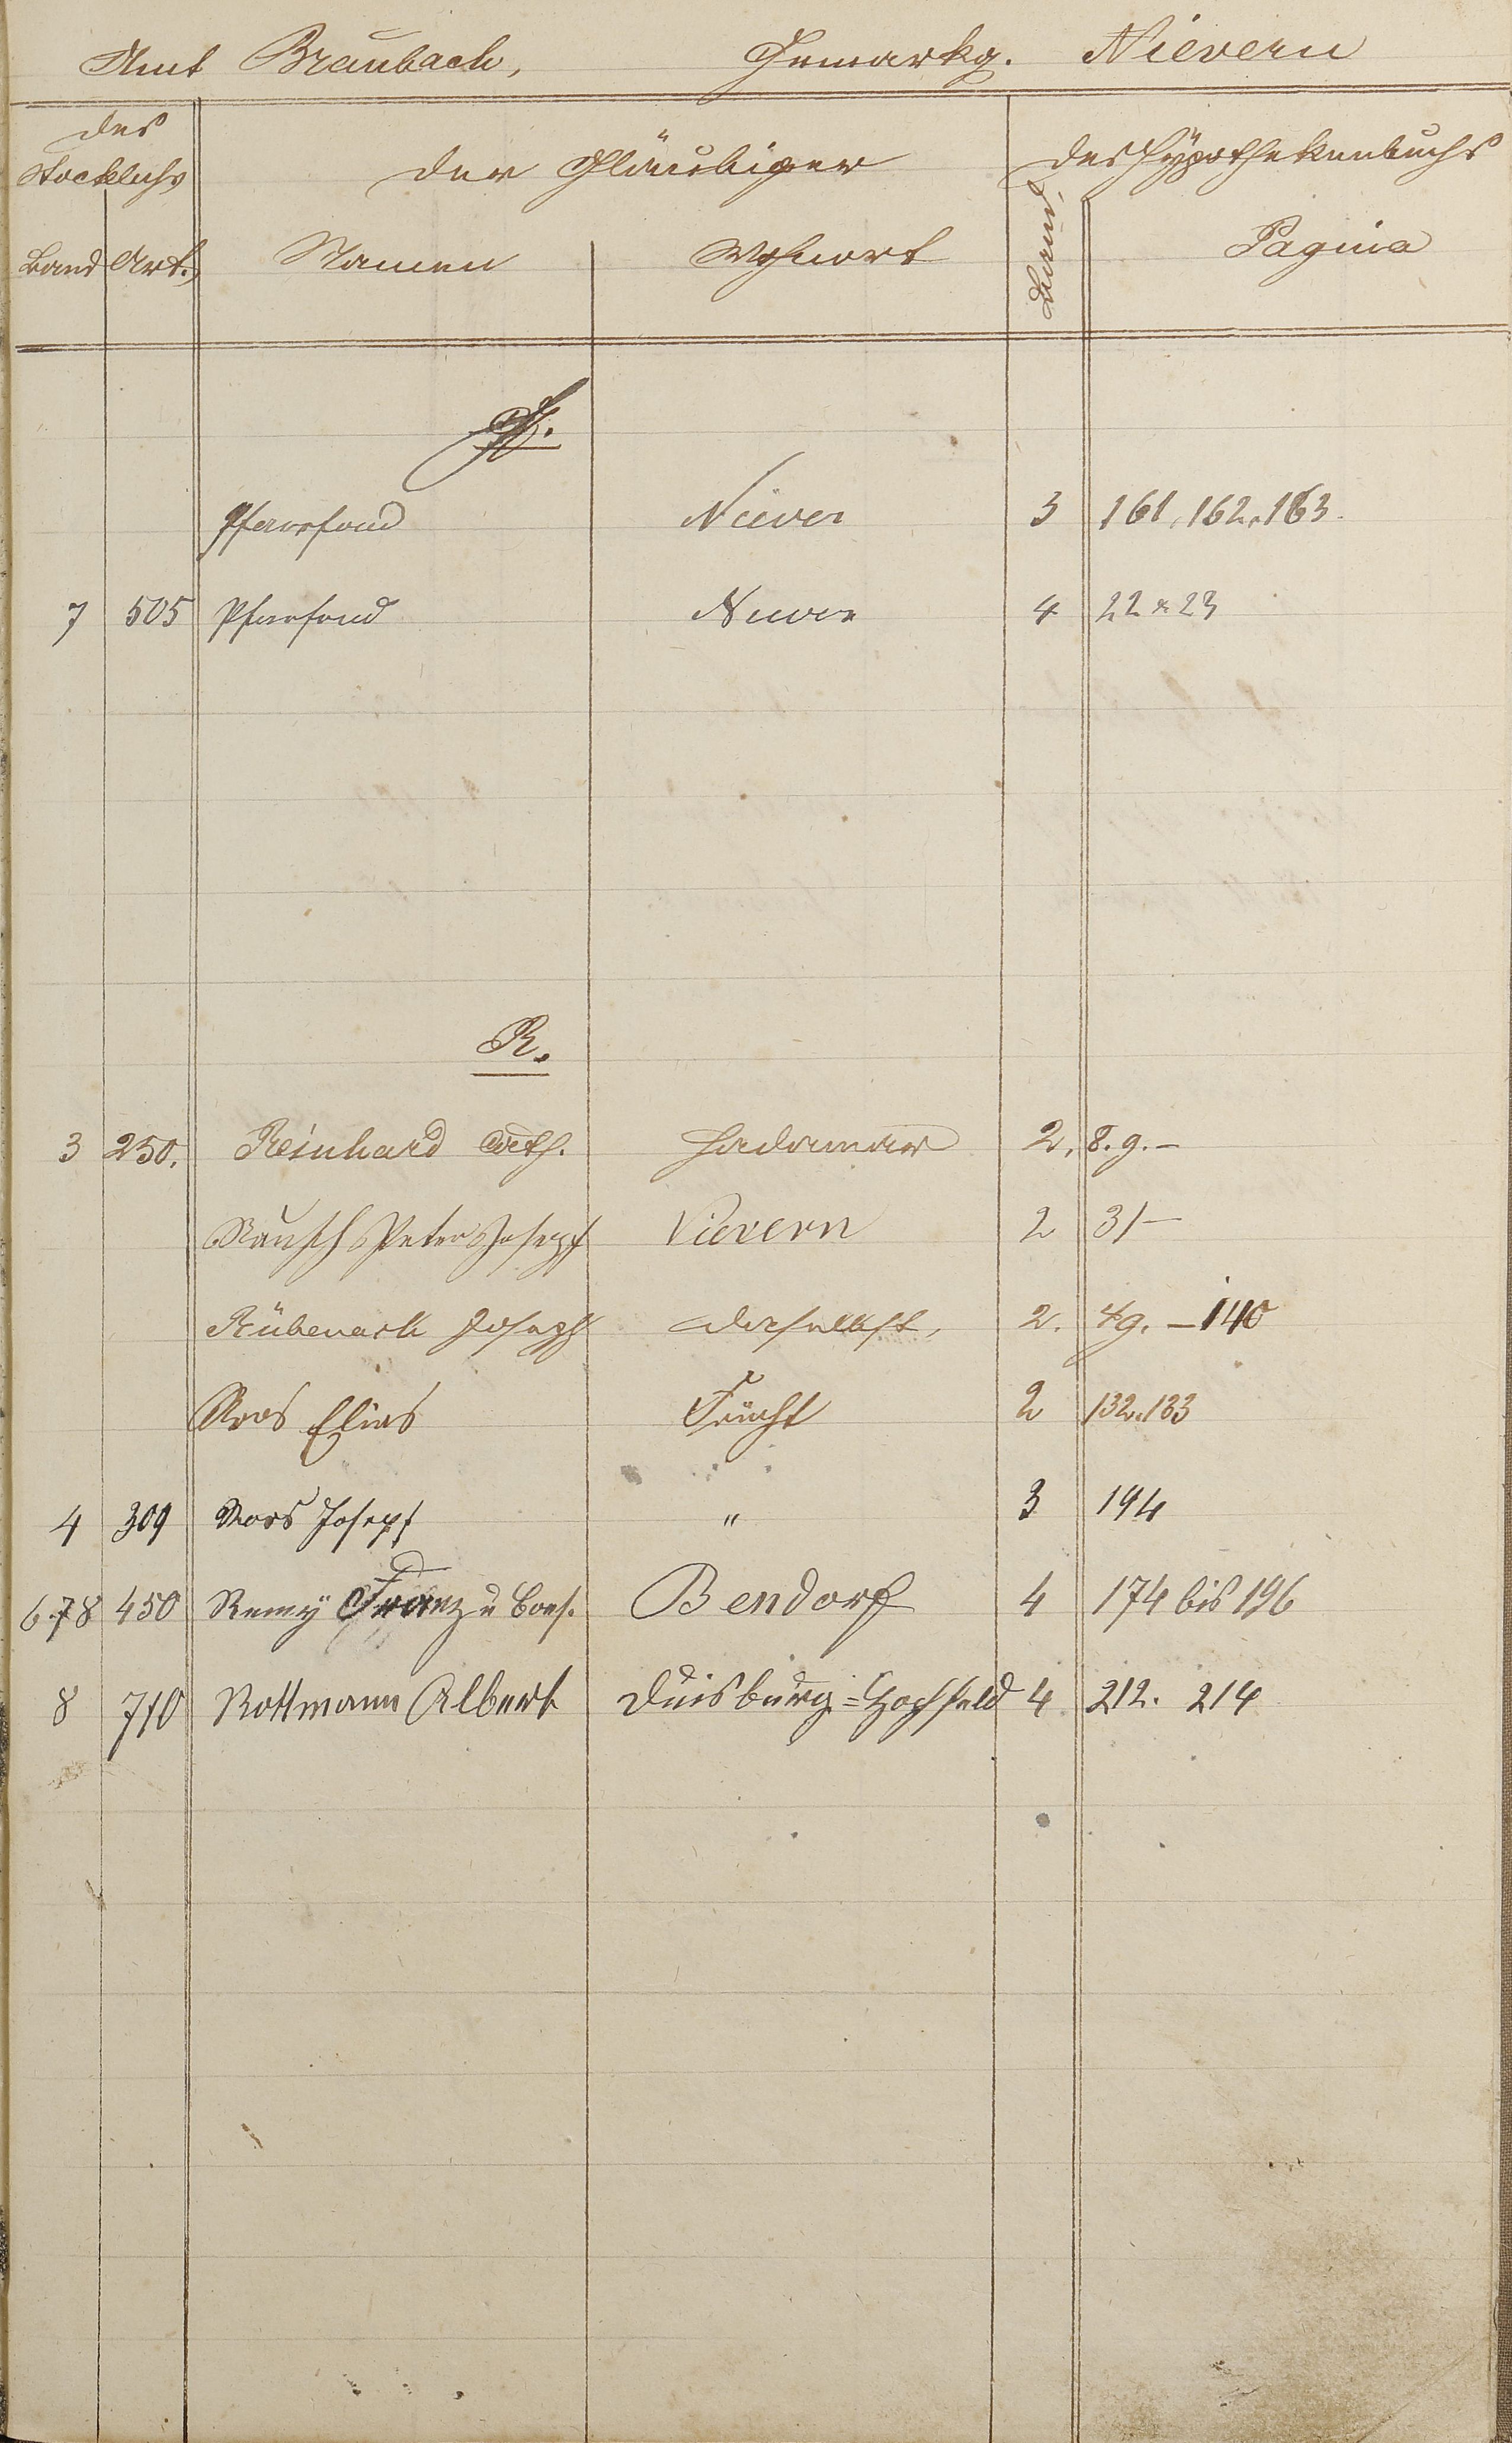 Amt Braubach, Gemarkg. Nievern
des Stockbuchs der Gläubiger des Hypothekenbuchs
Band Art. Namen Wohnort Band. Pagina
Pf.
Pfarrfond Niever 3 161, 162, 163.
7 505 Pfarrfond Niever 4 22 & 23
R.
3 250. Reinhard Cath. Hadamar 2. 8. 9. –
Rausch Peter Joseph Nievern 2 31 –
Rübenach Joseph daselbst, 2. 49. – 140
Roos Elias Frücht 2 132. 133
4 309 Roos Joseph " 3 194
6 7 8 450 Remÿ Franz u Cons. Bendorf 4 174 bis 196
8 710 Rottmann Albert Duisburg=Hochfeld 4 212. 214